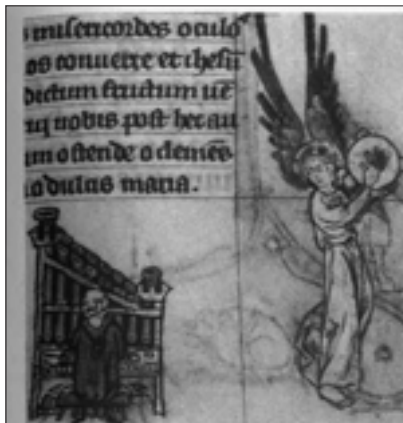 s misericordes oculo
os conuerte et ihesū
dictum fructum uē
nobis post hec au
um ostende o clemēs
o dulcis maria.